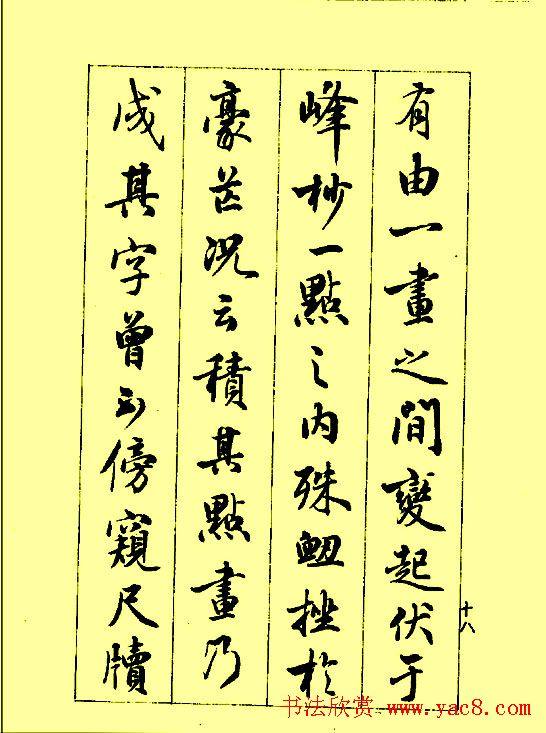 有由一畫之間變起伏于
峰杪一點之内殊衄挫於
豪芒況云積其點畫乃
成其字曾不傍窺尺牘
十八
书法欣赏 www.yac8.com